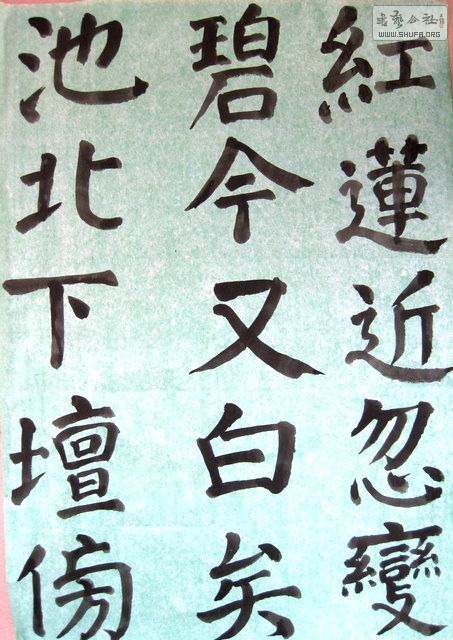 紅蓮近忽變
碧今又白矣
池北下壇傍
WWW.SHUFA.ORG